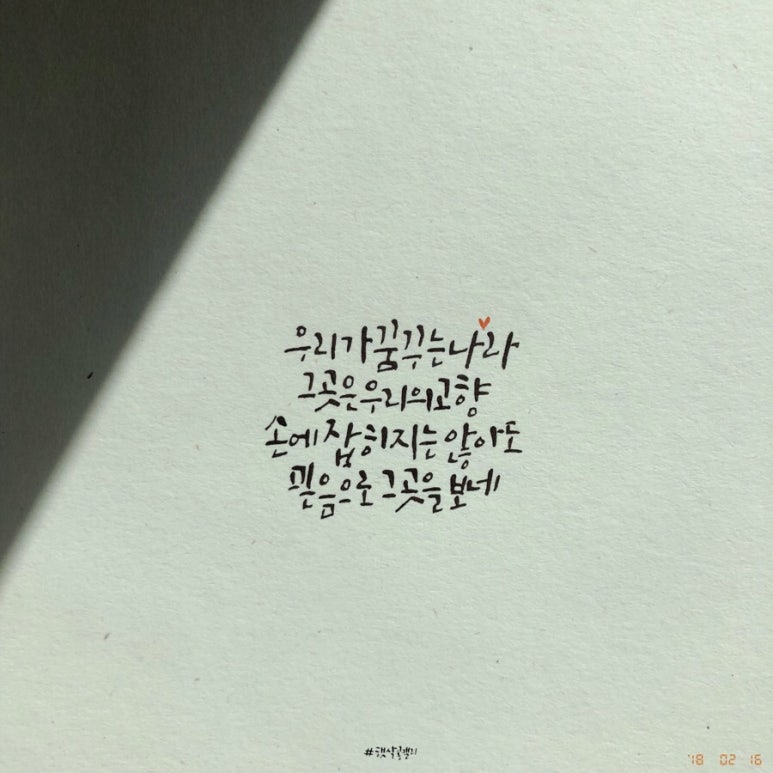 우리가 꿈꾸는 나라
그곳은 우리의 고향
손에 잡히지는 않아도
믿음으로 그곳을 보네
#햇살콩캘리
'18 02 16